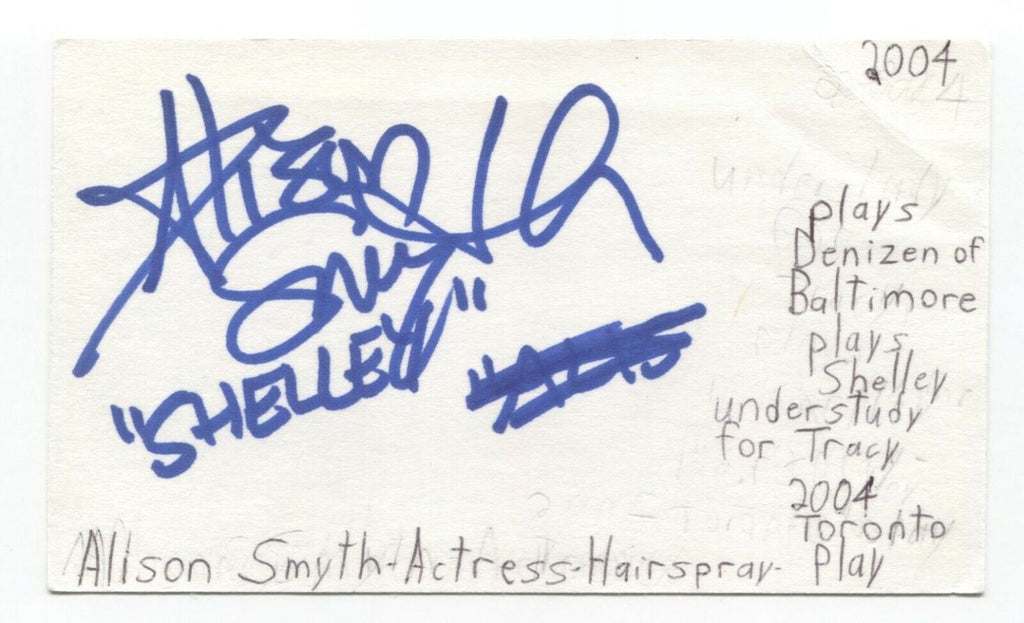 2004
Alison
Smyth
"SHELLEY"
plays
Denizen of
Baltimore
plays
Shelley
understudy
for Tracy
2004
Toronto
Alison Smyth-Actress-Hairspray- Play